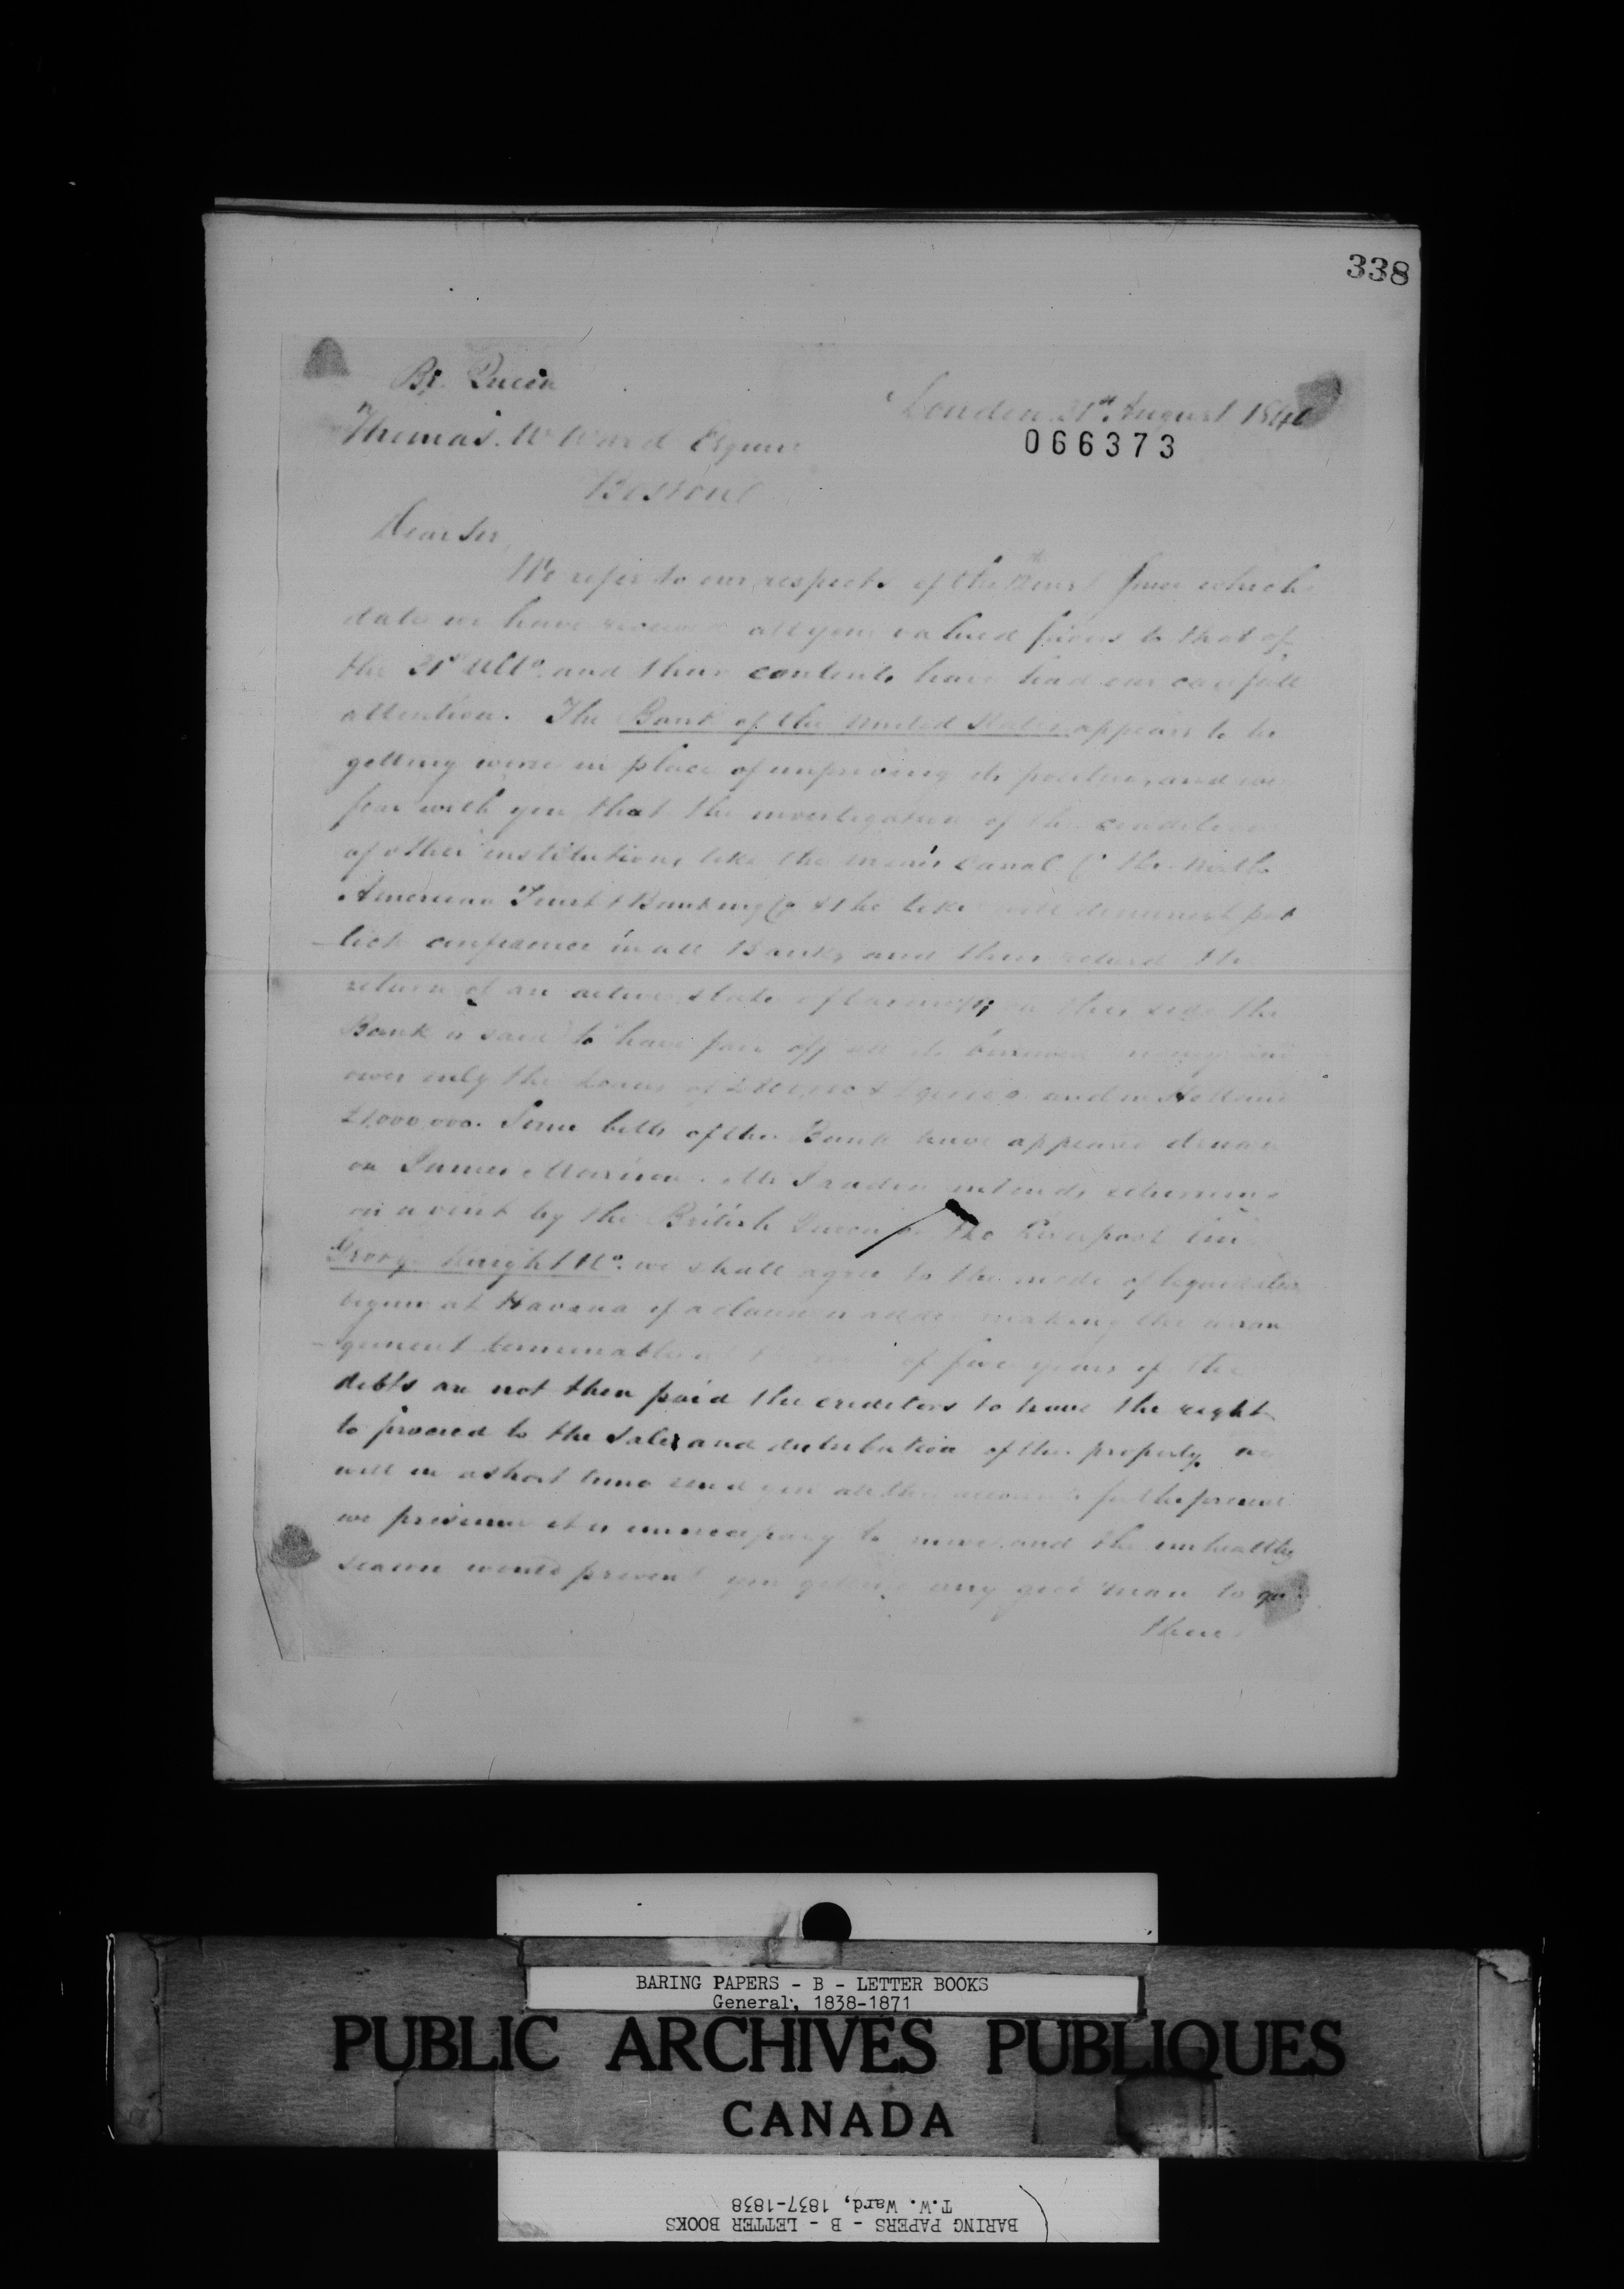 338
Br. Queen
London 31st August 1840
066373
Thomas. W Ward Esquire
Boston
Dear Sir,
We refer to our respects of the inst since which
date we have received all your valued favors to that of
the 31st Ulto. and their contents have had our carefull
attention. The Bank of the United States appears to be
getting worse in place of improving its position, and we
fear with you that the investigation of the condition
of other institutions like the Morris Canal Co the North
American Trust & Banking Co & the like will diminish pub
-lick confidence in all Banks and thus retard the
return of an active state of business; on this side the
Bank is said to have paid off all its borrowed money and
owes only the Loans of & and in Holland
£1,000,000. Some bills of the Bank have appeared drawn
on James Morrison. Mr Jaudon intends returning
on a visit by the British Queen or the Liverpool line
George Knight Co. we shall agree to the mode of liquidation
begun at Havana if a clause is added making the arran
-gement terminable at of five years if the
debts are not then paid the creditors to have the right
to proceed to the sale and distribution of the property. we
will in a short time send you all the accounts for the present
we presume it is unnecessary to move and the unhealthy
season would prevent you getting any good man to go
there
BARING PAPERS - B - LETTER BOOKS
General, 1838-1871
PUBLIC ARCHIVES PUBLIQUES
CANADA
BARING PAPERS - B - LETTER BOOKS
T.W. Ward, 1837-1838